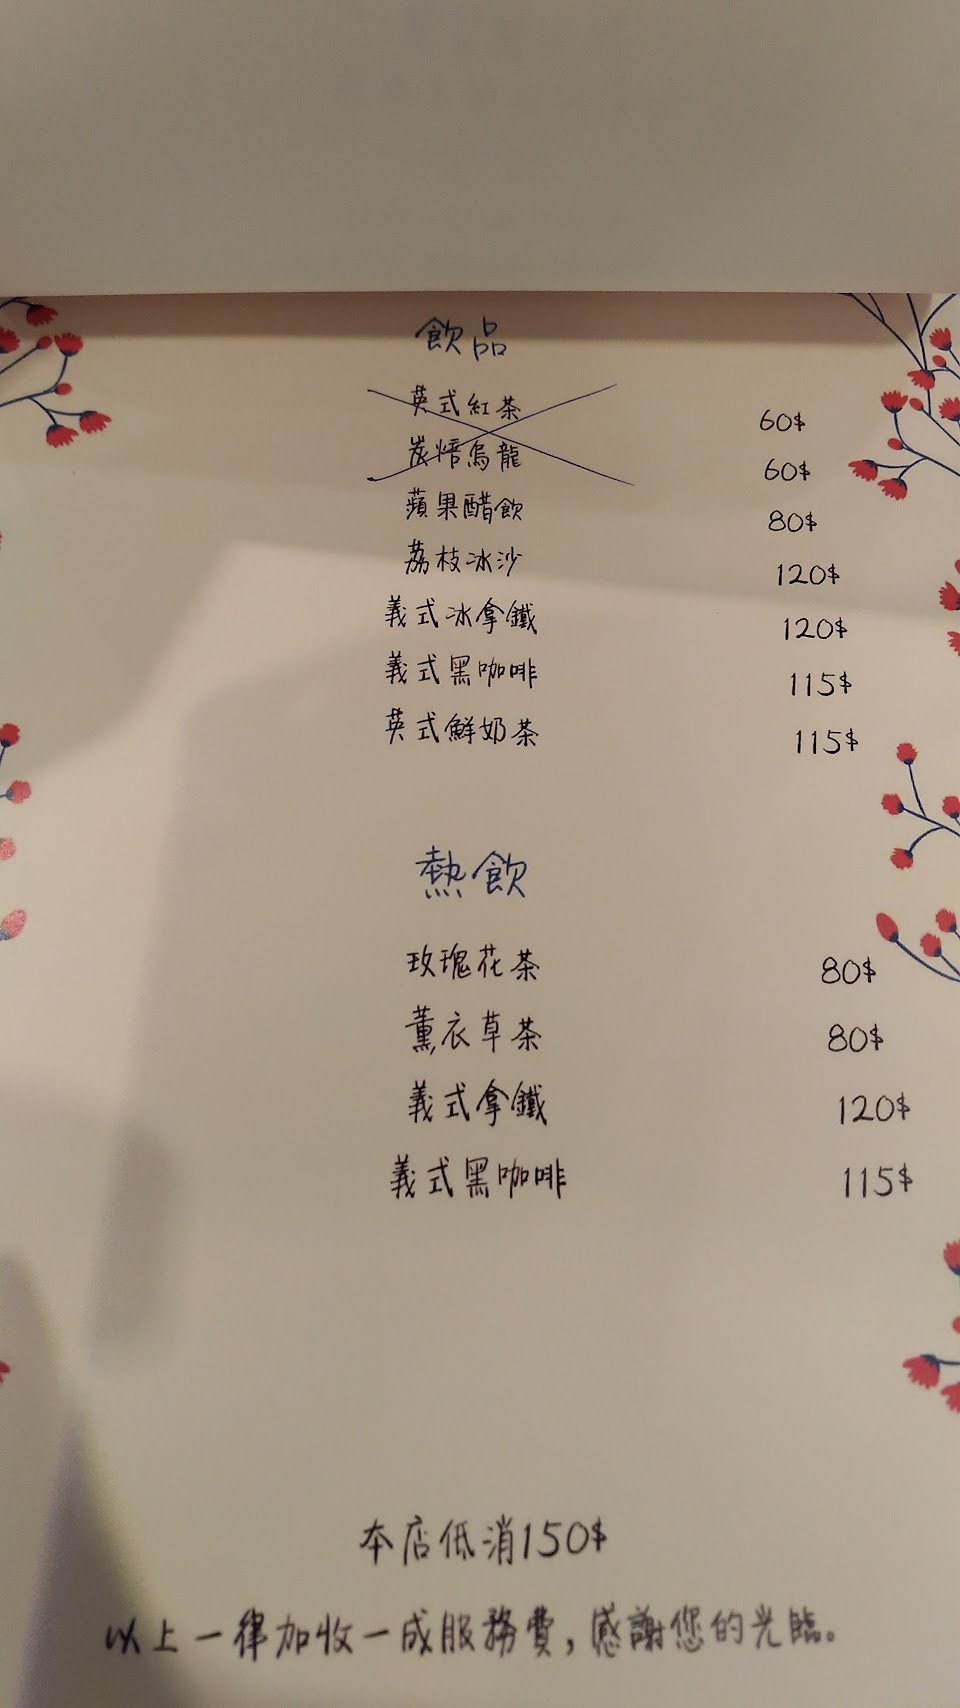 飲品
英式紅茶 60$
炭焙烏龍 60$
蘋果醋飲 80$
荔枝冰沙 120$
義式冰拿鐵 120$
義式黑咖啡 115$
英式鮮奶茶 115$
熱飲
玫瑰花茶 80$
薰衣草茶 80$
義式拿鐵 120$
義式黑咖啡 115$
本店低消150$
以上一律加收一成服務費,感謝您的光臨。